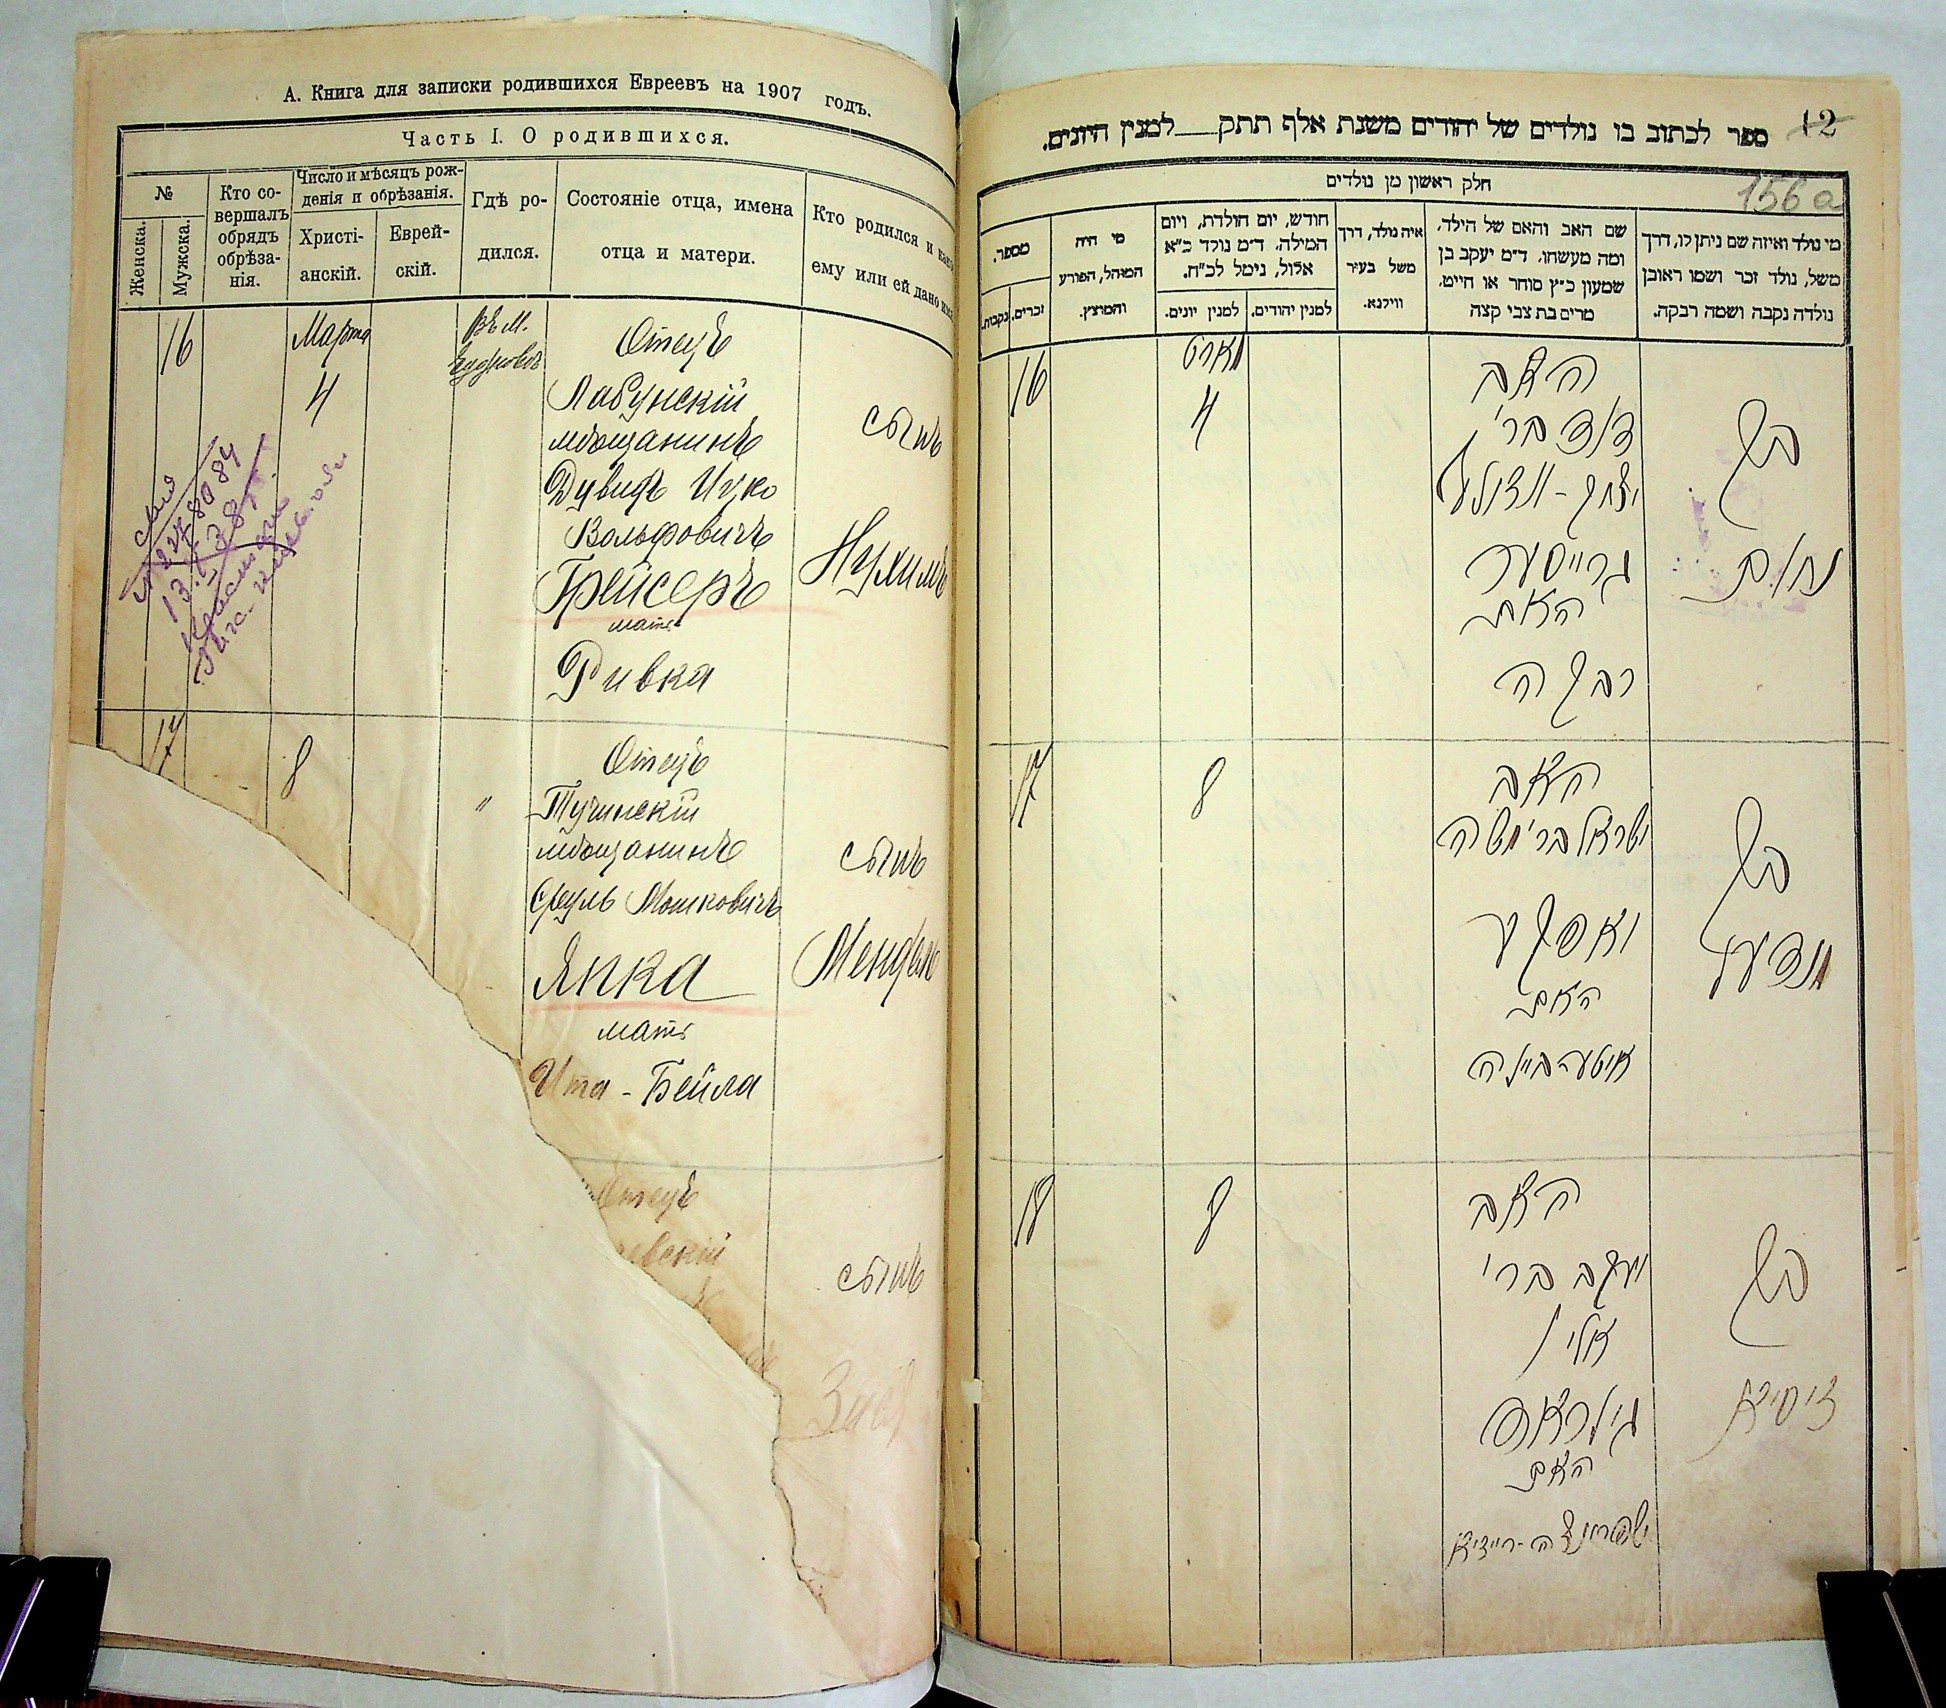 А. Книга для записки родившихся Евреевъ на 1907 годъ.
Часть I. О родившихся.
№
Женска.
Мужска.
Кто со-
вершалъ
обрядъ
обрѣза-
нія.
Число и мѣсяцъ рож-
денія и обрѣзанія.
Христі-
анскій.
Еврей-
скій.
Гдѣ ро-
дился.
Состояніе отца, имена
отца и матери.
Кто родился и како
ему или ей дано имя
16
Марта
4
въ м.
Отецъ
Лабунскій
мѣщанинъ
Дувидъ Ицко
Вольфовичъ
Грейсеръ
мать
Ривка
сынъ
Нухимъ
17
8
"
Отецъ
Тучинскій
мѣщанинъ
Сруль Мошковичъ
Япка
мать
Ита-Бейла
сынъ
Мендель
Отецъ
евскій
сынъ
12
156а
ספר לכתוב בו נולדים של יהודים משנת אלף תתק___למנין היונים.
חלק ראשון מן נולדים
מספר.
נקבות.
זכרים.
מי היה
המוהל, הפורע
והמוצץ.
חודש, יום הולדת, ויום
המילה, ד״מ נולד כ״א
אלול, נימל לכ״ח.
למנין יונים.
למנין יהודים.
איה נולד, דרך
משל בעיר
ווילנא.
שם האב והאם של הילד,
ומה מעשהו, ד״מ יעקב בן
שמעון כ״ץ סוחר או חייט,
מרים בת צבי קצה
מי נולד ואיזה שם ניתן לו, דרך
משל, נולד זכר ושמו ראובן
נולדה נקבה ושמה רבקה.
16
מארט
4
האב
דוד בר׳
גרייסער
האם
רבקה
בן
נחום
17
8
האב
ישראל בר׳ משה
יאפקע
האם
איטע ביילה
בן
מענדעל
18
8
האב
יעקב בר׳
האם
בן
זיסיא